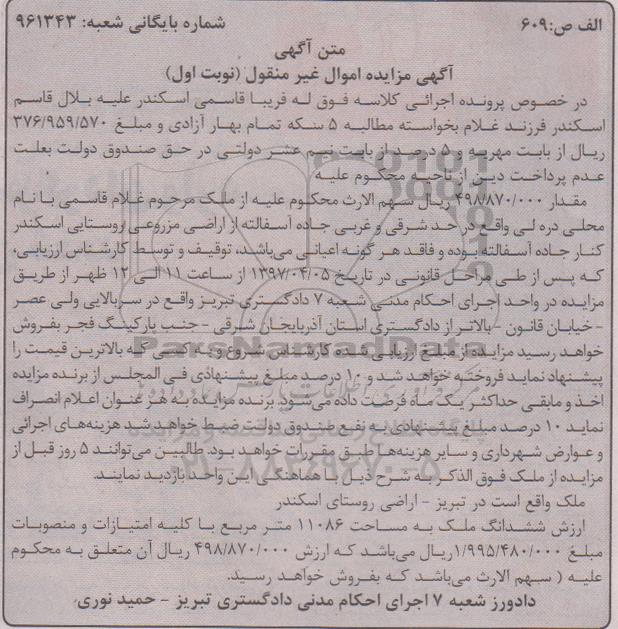 الف ص:۶۰۹ شماره بایگانی شعبه: ۹۶۱۳۴۳
متن آگهی
آگهی مزایده اموال غیر منقول (نوبت اول)
در خصوص پرونده اجرائی کلاسه فوق له فریبا قاسمی اسکندر علیه بلال قاسم
اسکندر فرزند غلام بخواسته مطالبه ۵ سکه تمام بهار آزادی و مبلغ ۳۷۶/۹۵۹/۵۷۰
ریال از بابت مهریه و ۵ درصد از بابت نیم عشر دولتی در حق صندوق دولت بعلت
عدم پرداخت دین از ناحیه محکوم علیه
مقدار ۴۹۸/۸۷۰/۰۰۰ ریال سهم الارث محکوم علیه از ملک مرحوم غلام قاسمی با نام
محلی دره لی واقع در حد شرقی و غربی جاده آسفالته از اراضی مزروعی روستایی اسکندر
کنار جاده آسفالته بوده و فاقد هر گونه اعیانی می‌باشد، توقیف و توسط کارشناس ارزیابی،
که پس از طی مراحل قانونی در تاریخ ۱۳۹۷/۰۴/۰۵ از ساعت ۱۱ الی ۱۲ ظهر از طریق
مزایده در واحد اجرای احکام مدنی شعبه ۷ دادگستری تبریز واقع در سربالایی ولی عصر
- خیابان قانون - بالاتر از دادگستری استان آذربایجان شرقی - جنب پارکینگ فجر بفروش
خواهد رسید مزایده از مبلغ ارزیابی شده کارشناس شروع و به کسی که بالاترین قیمت را
پیشنهاد نماید فروخته خواهد شد و ۱۰ درصد مبلغ پیشنهادی فی المجلس از برنده مزایده
اخذ و مابقی حداکثر یک ماه فرصت داده می‌شود. برنده مزایده به هر عنوان اعلام انصراف
نماید ۱۰ درصد مبلغ پیشنهادی به نفع صندوق دولت ضبط خواهد شد هزینه‌های اجرائی
و عوارض شهرداری و سایر هزینه‌ها طبق مقررات خواهد بود. طالبین می‌توانند ۵ روز قبل از
مزایده از ملک فوق الذکر به شرح ذیل با هماهنگی این واحد بازدید نمایند.
ملک واقع است در تبریز - اراضی روستای اسکندر
ارزش ششدانگ ملک به مساحت ۱۱۰۸۶ متر مربع با کلیه امتیازات و منصوبات
مبلغ ۱/۹۹۵/۴۸۰/۰۰۰ریال می‌باشد که ارزش ۴۹۸/۸۷۰/۰۰۰ ریال آن متعلق به محکوم
علیه ( سهم الارث می‌باشد که بفروش خواهد رسید.
دادورز شعبه ۷ اجرای احکام مدنی دادگستری تبریز - حمید نوری
ParsNamadData
۰۲۱-۸۸۳۴۹۶۷۰-۵